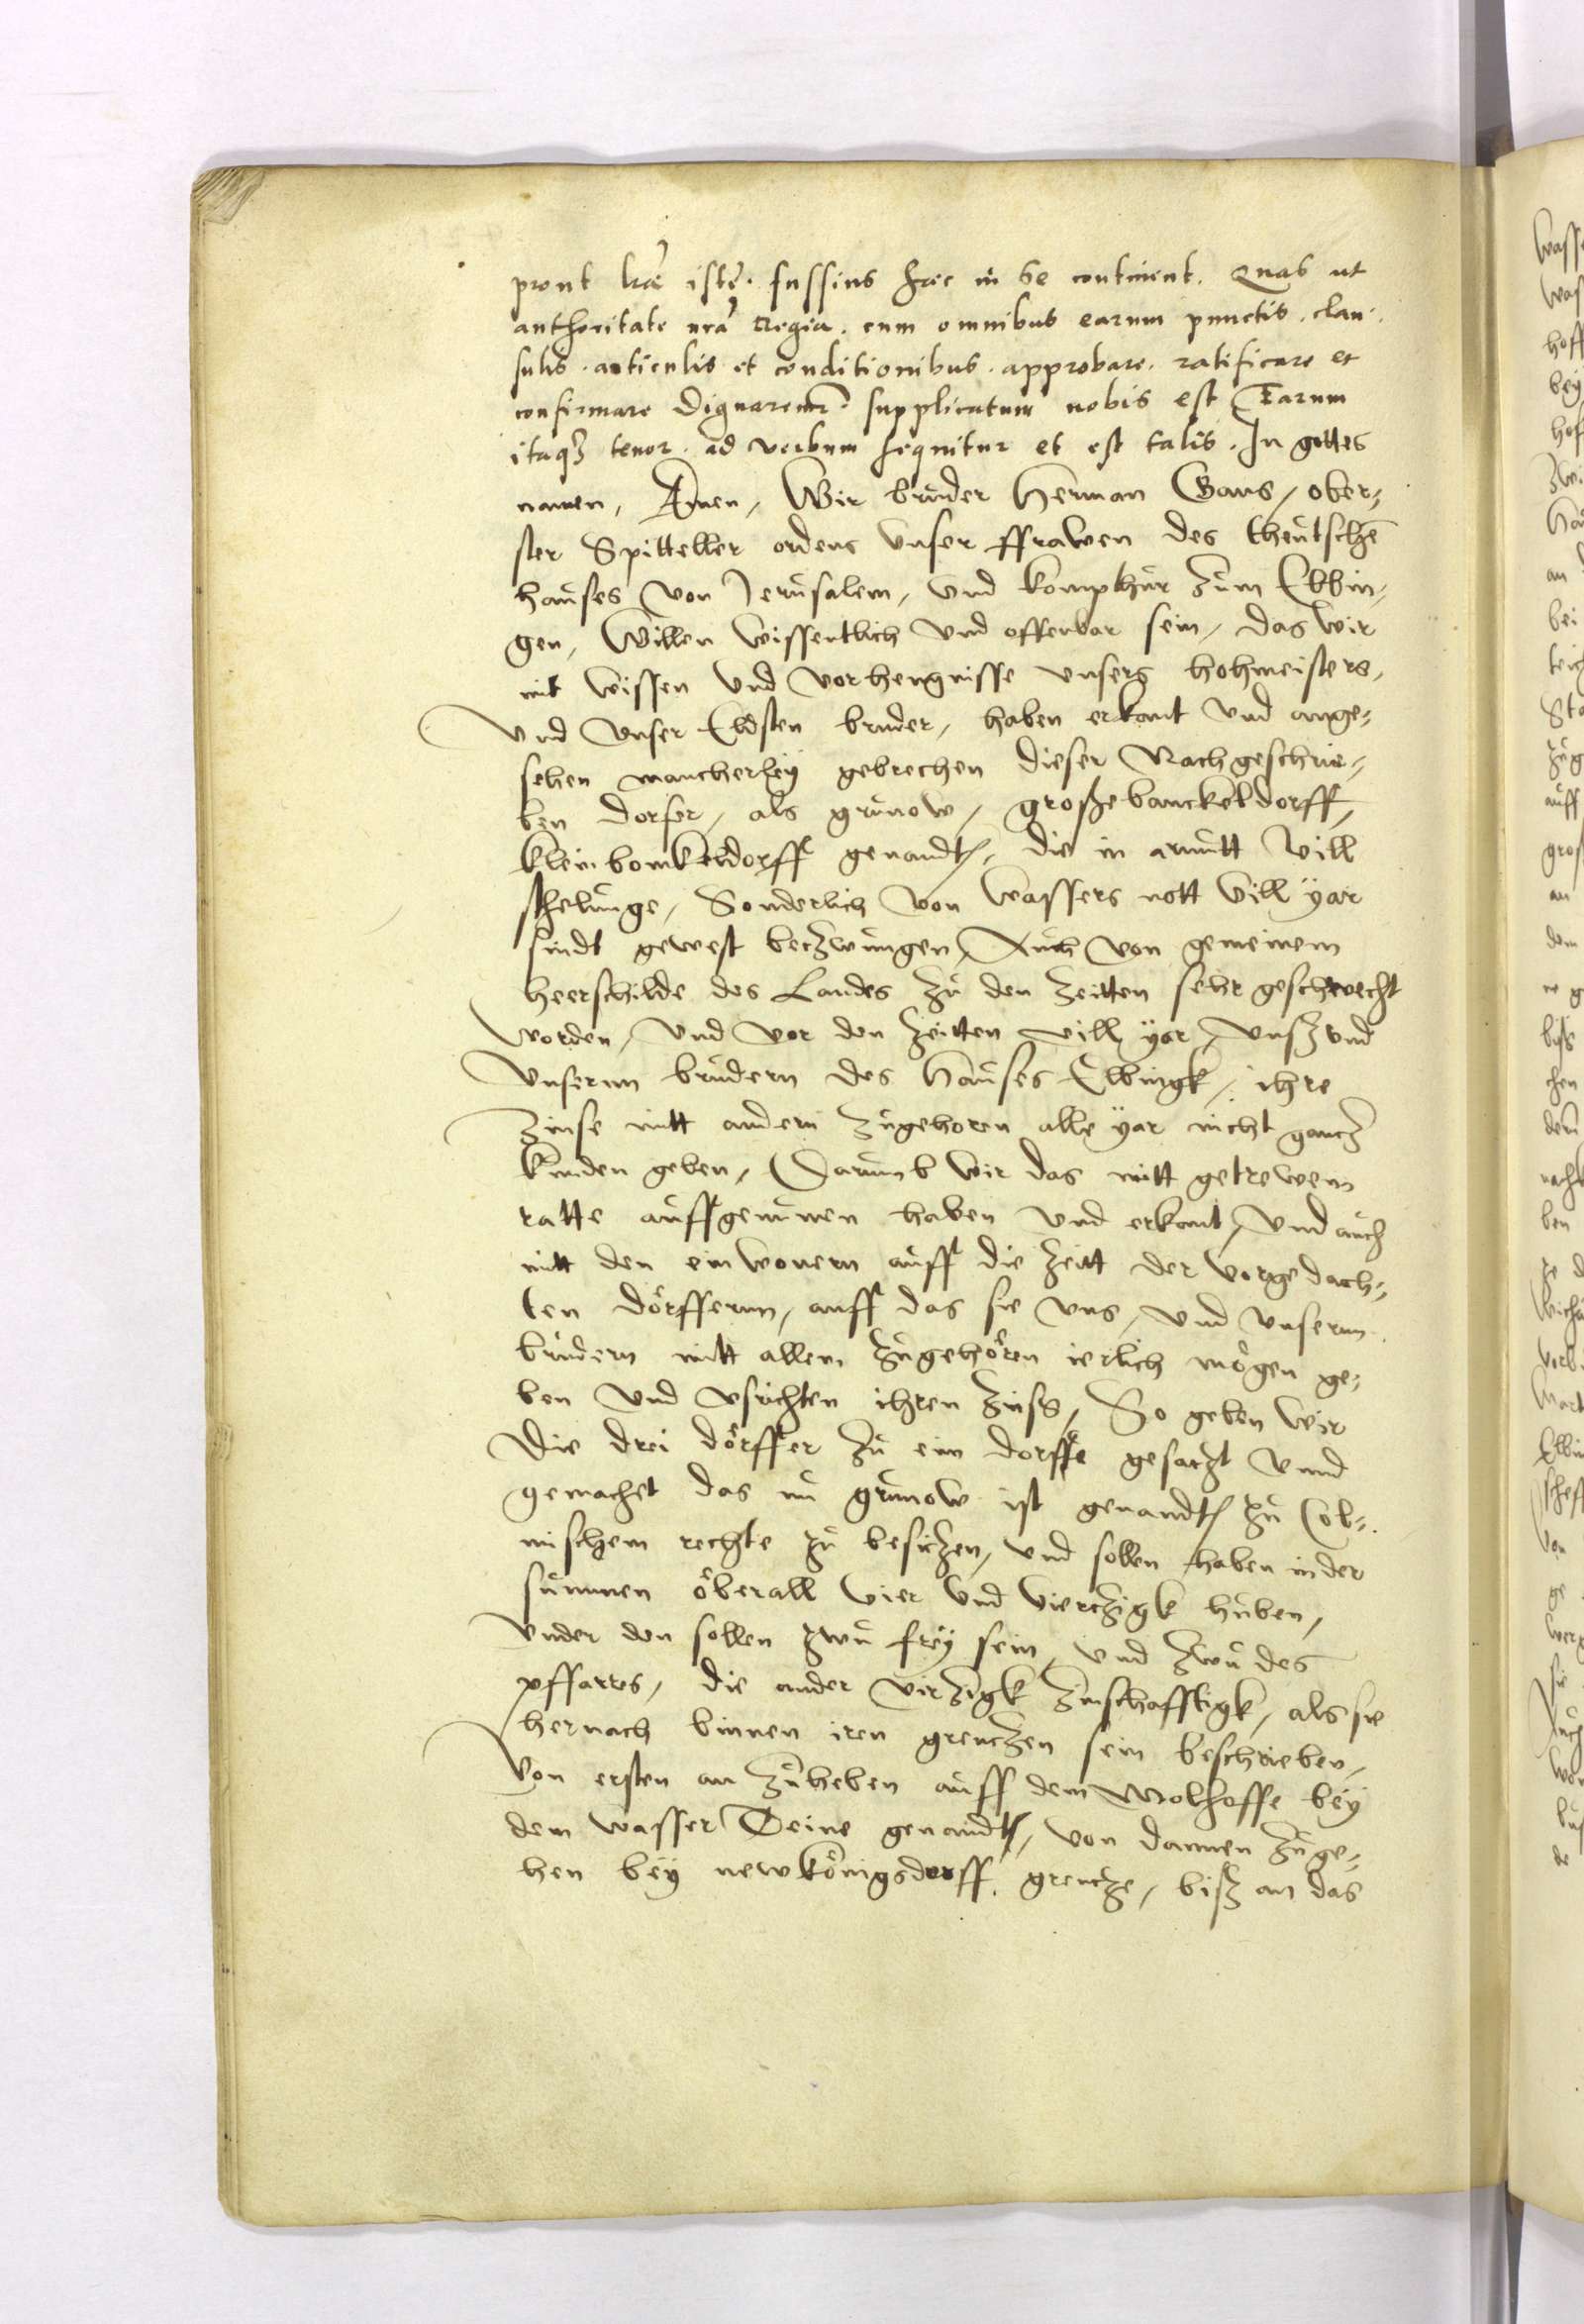 prout lrae istę. fussius haec in se continent. Quas ut
authoritate nrã Regia. cum omnibus earum punctis. clau-
sulis. articulis et conditionibus. approbare. ratificare et
confirmare dignaremr. supplicatum nobis est Earum
itaqꝫ tenor. ad verbum sequitur et est talis. In gottes
namen, Amen, Wir brůder Herman Gans, ober-
ster Spitteller ordens unser ffrawen des theůtschē
haůses von Jerůsalem, vnd kompthůr zům Elbin-
gen, Willen wissentlich vnd offenbar sein, das wir
mit wissen vnd vorhengnisse vnsers hohmeisters,
vnd vnser Eldsten bruder, haben erkant vnd ange-
sehen mancherleÿ gebrechen dieser Nachgeschrie-
ben dorfer, als grůnow, großebanckeldorff,
kleinbomkeldorff genandt, die in armůtt vill
schelůnge, Sonderlich von wassers nott vill ÿar
sindt gewest beczwůngen, Aůch von gemeinem
heerschilde des Landes zů den zeitten sehr geschwecht
worden, vnd vor den zeitten vill ÿar, vnsz vnd
vnsernn brůdern des haůses Elbingk, ihre
Zinse mitt andern zůgehoren alle ÿar nicht gancz
kunden geben, Darůmb wir das mitt getrewem
ratte aůffgenůmen haben vnd erkant, vnd aůch
mitt den einwonern aůff die zeitt der vorgedach-
ten dörffernn, auff das sie vns, vnd vnsernn
brůdern mitt allem zůgehören ierlich mögen ge-
ben vnd vsrichten ihren zinss, So geben wir
die drei dörffer zů ein dorffe gesaczt vnnd
gemachet das nů grůnow ist genandt zů Col-
mischem rechte zů besiczen, vnd sollen haben in der
sůmmen öberall vier vnd vierczigk hůben,
vnder den sollen zwů freÿ sein, vnd zwů des
pffarres, die ander virzigk zinschafftigk, als sie
hernach binnen iren grenczen sein beschrieben,
Von ersten an zůheben aůff dem Molhoffe beÿ
dem wasser Teine genandt, von dannen zůge-
hen beÿ newkönigsdorff grencze, bisz an das